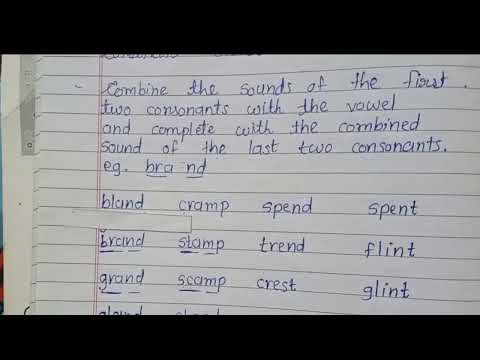 - Combine the sounds of the first
two consonants with the vowel
and complete with the combined
sound of the last two consonants.
eg. bra nd
bland cramp spend spent
brand stamp trend flint
grand scamp crest glint